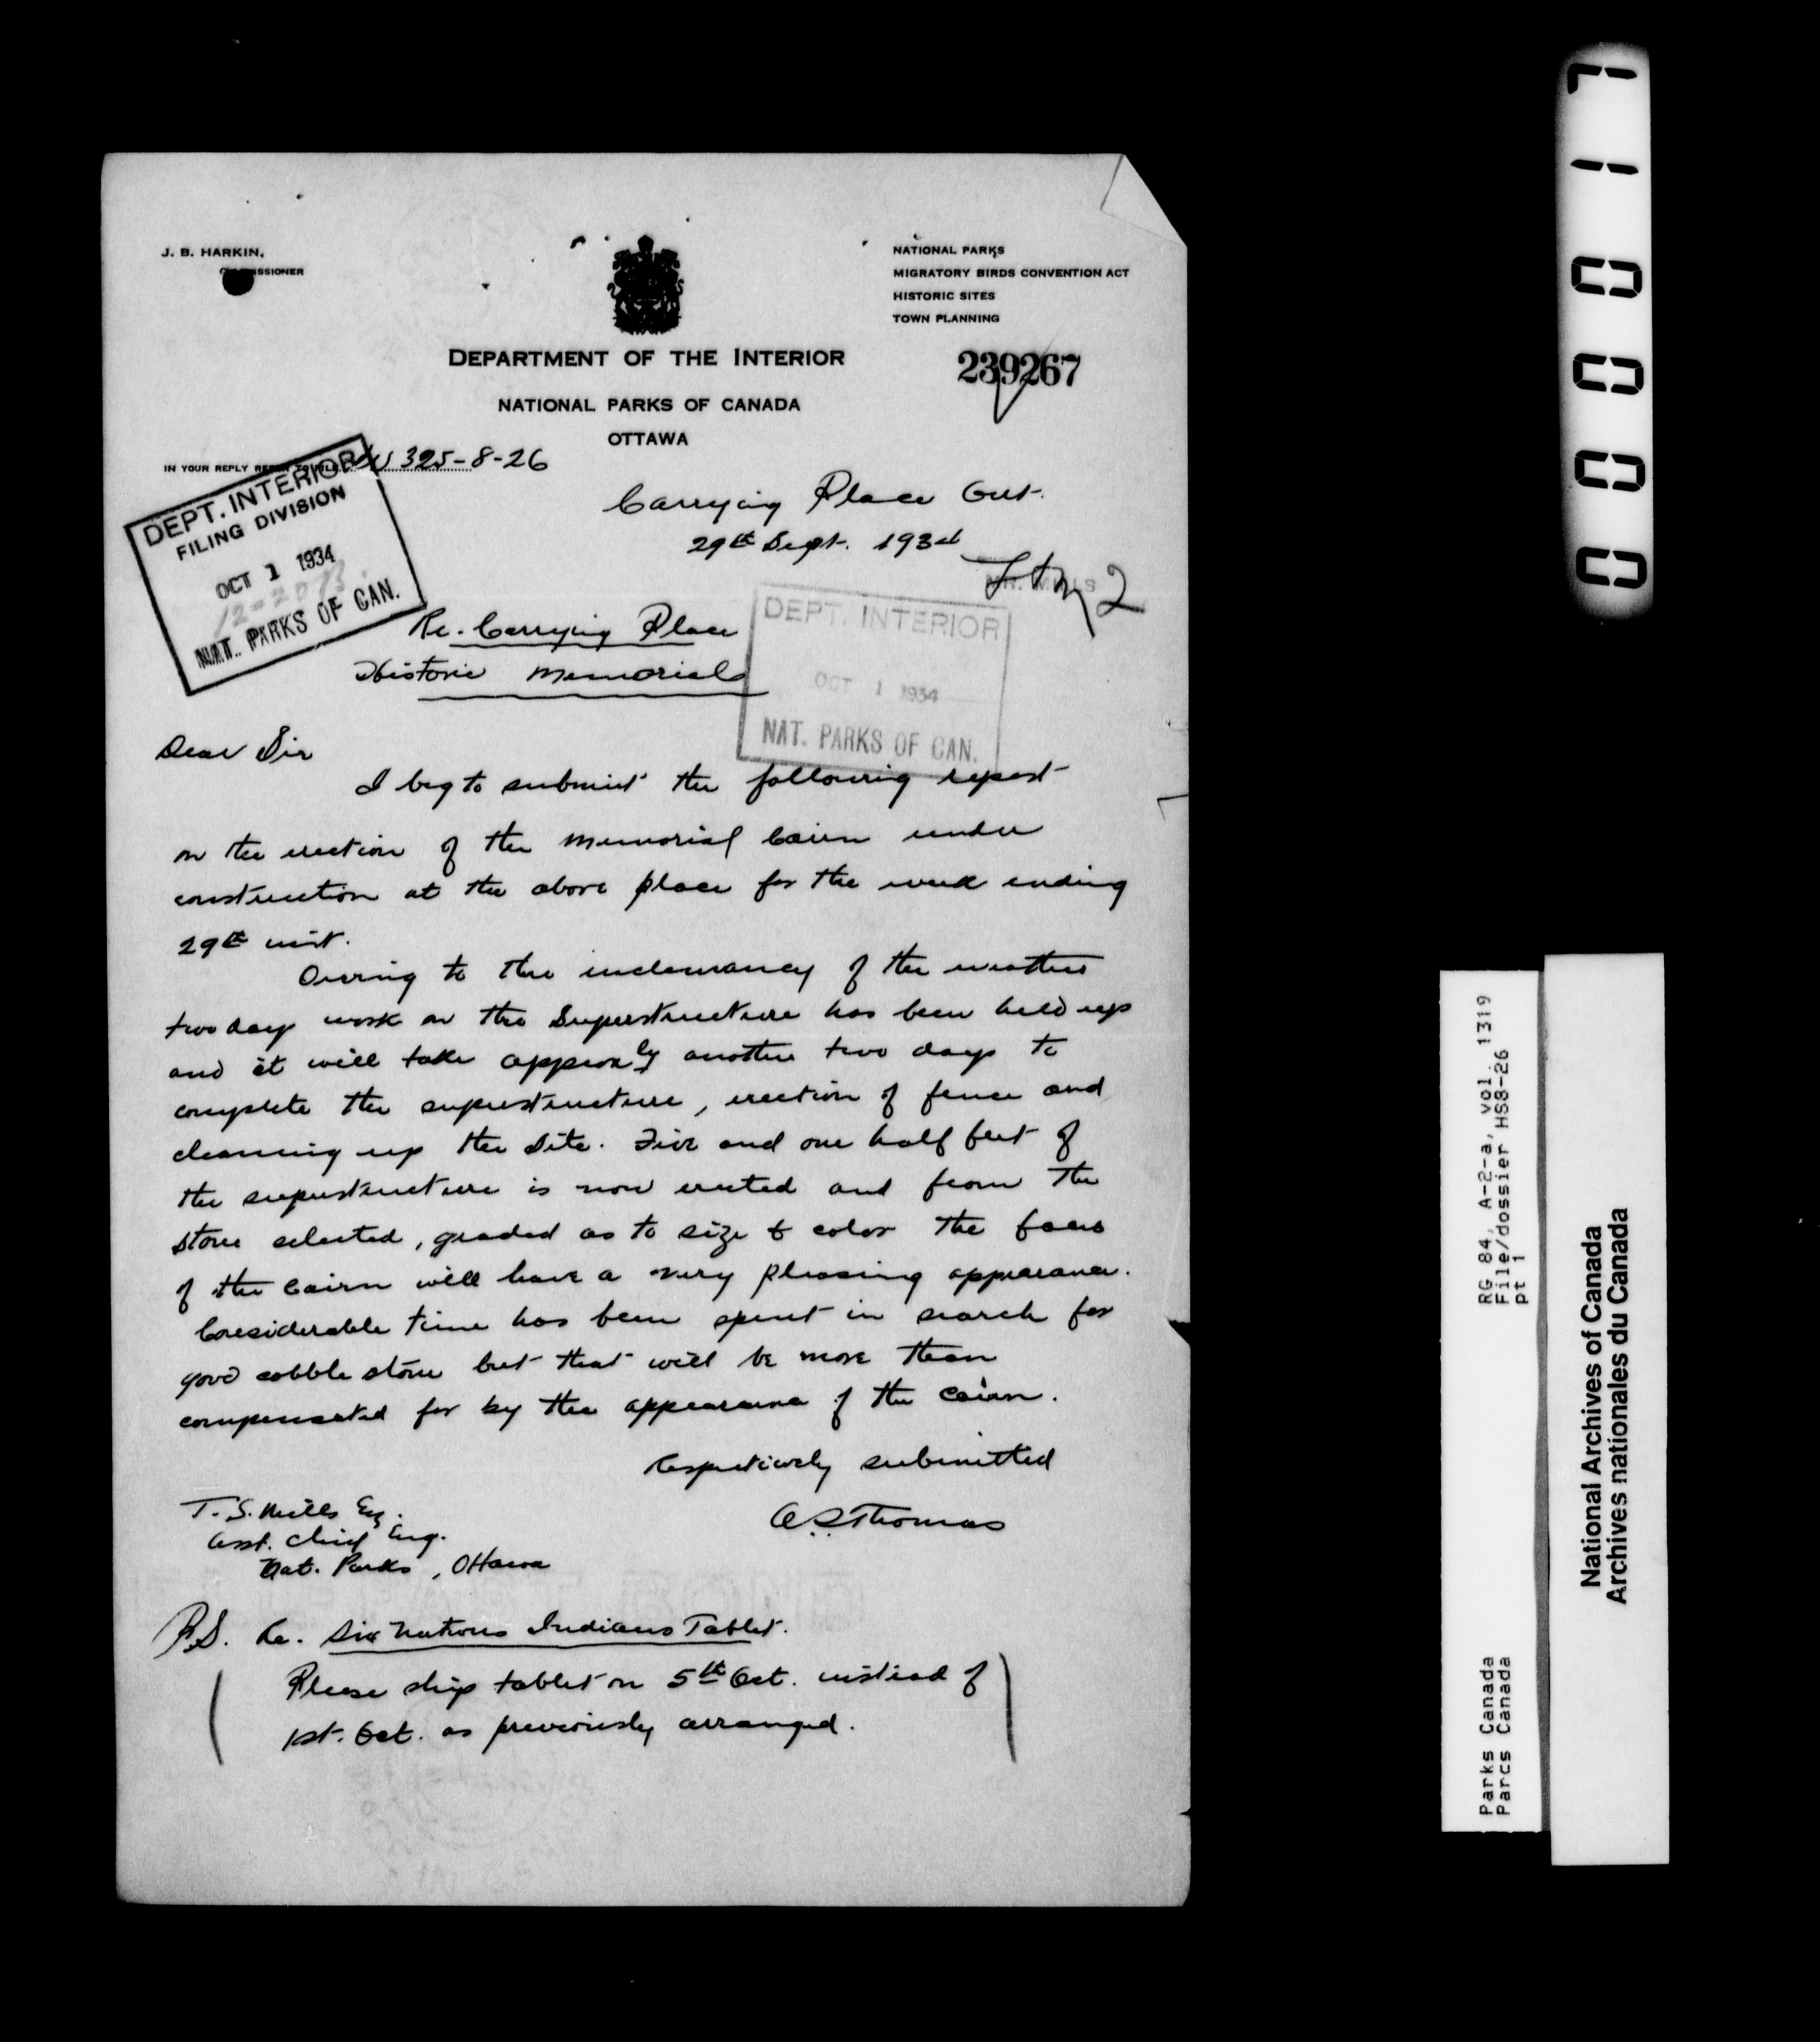 J. B. HARKIN,
COMMISSIONER
NATIONAL PARKS
MIGRATORY BIRDS CONVENTION ACT
HISTORIC SITES
TOWN PLANNING
DEPARTMENT OF THE INTERIOR
239267
NATIONAL PARKS OF CANADA
OTTAWA
IN YOUR REPLY REFER TO FILE 325-8-26
DEPT. INTERIOR
FILING DIVISION
OCT 1 1934
NAT. PARKS OF CAN.
Carrying Place Ont.
29th Sept. 1934
MR. MILLS
DEPT. INTERIOR
OCT 1 1934
NAT. PARKS OF CAN.
Re. Carrying Place
Historic Memorial
Dear Sir
I beg to submit the following report
on the erection of the Memorial Cairn under
construction at the above place for the week ending
29th inst.
Owing to the inclemancy of the weather
two days work on the Superstructure has been held up
and it will take approxly another two days to
complete the superstructure, erection of fence and
cleaning up the site. Five and one half feet of
the superstructure is now erected and from the
stone selected, graded as to size & color the faces
of the Cairn will have a very pleasing appearance.
Considerable time has been spent in search for
good cobble stone but that will be more than
compensated for by the appearance of the cairn.
Respectively submitted
A.S. Thomas
T. S. Mills Esq.
Asst. Chief Eng.
Nat. Parks, Ottawa
P.S. Re. Six Nations Indians Tablet.
Please ship tablet on 5th Oct. instead of
1st. Oct. as previously arranged.
000017
RG 84, A-2-a, vol. 1319
File/dossier HS8-26
pt 1
Parks Canada
Parcs Canada
National Archives of Canada
Archives nationales du Canada